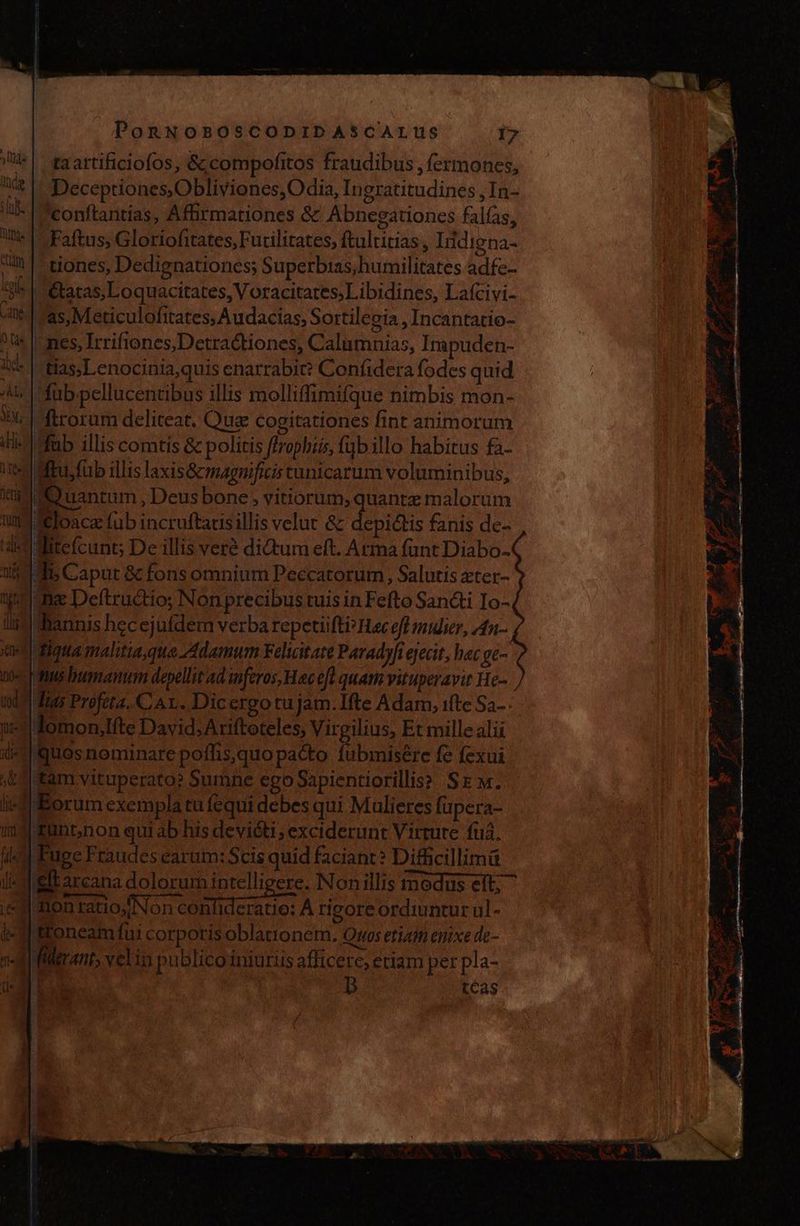 PORNOBOSCODIDASCALUS 17
ta artificiosos, & compositos fraudibus, sermones,
Deceptiones, Obliviones, Odia, Ingratitudines, In-
conſtantias, Affirmationes & Abnegationes falſas,
Faſtus, Glorioſitates, Futilitates, ſtultitias, Indigna-
tiones, Dedignationes; Superbias, humilitates adfe-
ctatas, Loquacitates, Voracitates, Libidines, Laſcivi-
as, Meticuloſitates, Audacias, Sortilegia, Incantatio-
nes, Irriſiones, Detractiones, Calumnias, Impuden-
tias, Lenocinia, quis enarrabit? Conſidera ſodes quid
ſub pellucentibus illis molliſſimiſque nimbis mon-
ſtrorum deliteat. Quæ cogitationes ſint animorum
ſub illis comtis & politis ſtrophiis, ſub illo habitus fa-
ſtu, ſub illis laxis & magnificis tunicarum voluminibus,
Quantum, Deus bone, vitiorum, quantæ malorum
cloacæ ſub incruſtatis illis velut & depictis fanis de-
liteſcunt; De illis verè dictum eſt. Arma ſunt Diabo-
li, Caput & fons omnium Peccatorum, Salutis æter-
næ Deſtructio; Non precibus tuis in Feſto Sancti Io-
hannis hęc ejuſdem verba repetiiſti? Hæc eſt mulier, An-
tiqua malitia, qua Adamum Felicitate Paradyſi ejecit, hac ge-
nus humanum depellit ad inferos, Hæc eſt quam vituperavit He-
lias Profeta. CAL. Dic ergo tu jam. Iſte Adam, iſte Sa-
lomon, Iſte David, Ariſtoteles, Virgilius, Et mille alii
quos nominare poſſis, quo pacto ſubmisêre ſe ſexui
tam vituperato? Sumne ego Sapientior illis? SEM.
Eorum exempla tu ſequi debes qui Mulieres ſupera-
runt, non qui ab his devicti, exciderunt Virtute ſuâ.
Fuge Fraudes earum: Scis quid faciant? Difficillimũ
eſt arcana dolorum intelligere. Non illis modus eſt,
non ratio, Non conſideratio: A rigore ordiuntur ul-
troneam ſui corporis oblationem. Quos etiam enixe de-
ſiderant, vel in publico iniuriis afficere, etiam per pla-
B teas